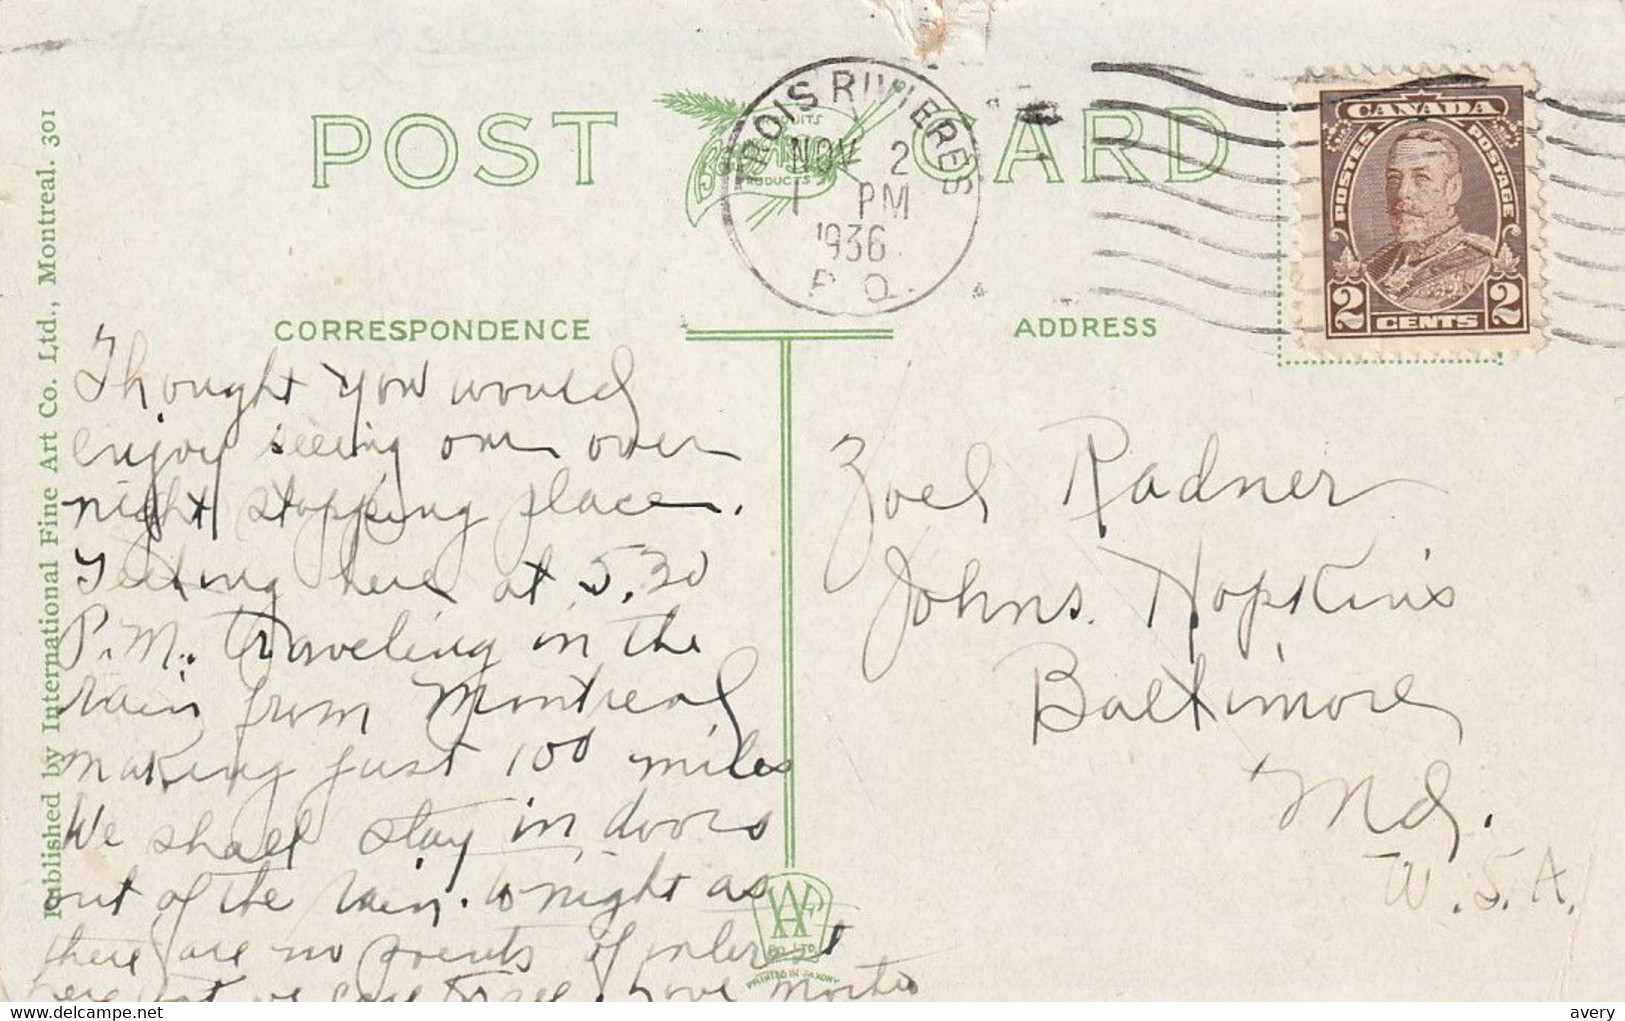 POST CARD
TROIS RIVIERES
NOV 2
1 PM
1936
P.Q.
CANADA
POSTES POSTAGE
2 CENTS 2
PRODUCTS
CORRESPONDENCE
ADDRESS
Published by International Fine Art Co. Ltd., Montreal. 301
Thought you would
enjoy seeing our over
night stopping place.
here at 5.30
P.M. traveling in the
rain from Montreal
making just 100 miles
We shall stay in doors
out of the rain. to night as
there are no of interest
we care to see. Love
Joel Radner
Johns. Hopkins
Baltimore
Md.
U.S.A.
CO. LTD.
PRINTED IN SAXONY
www.delcampe.net
avery